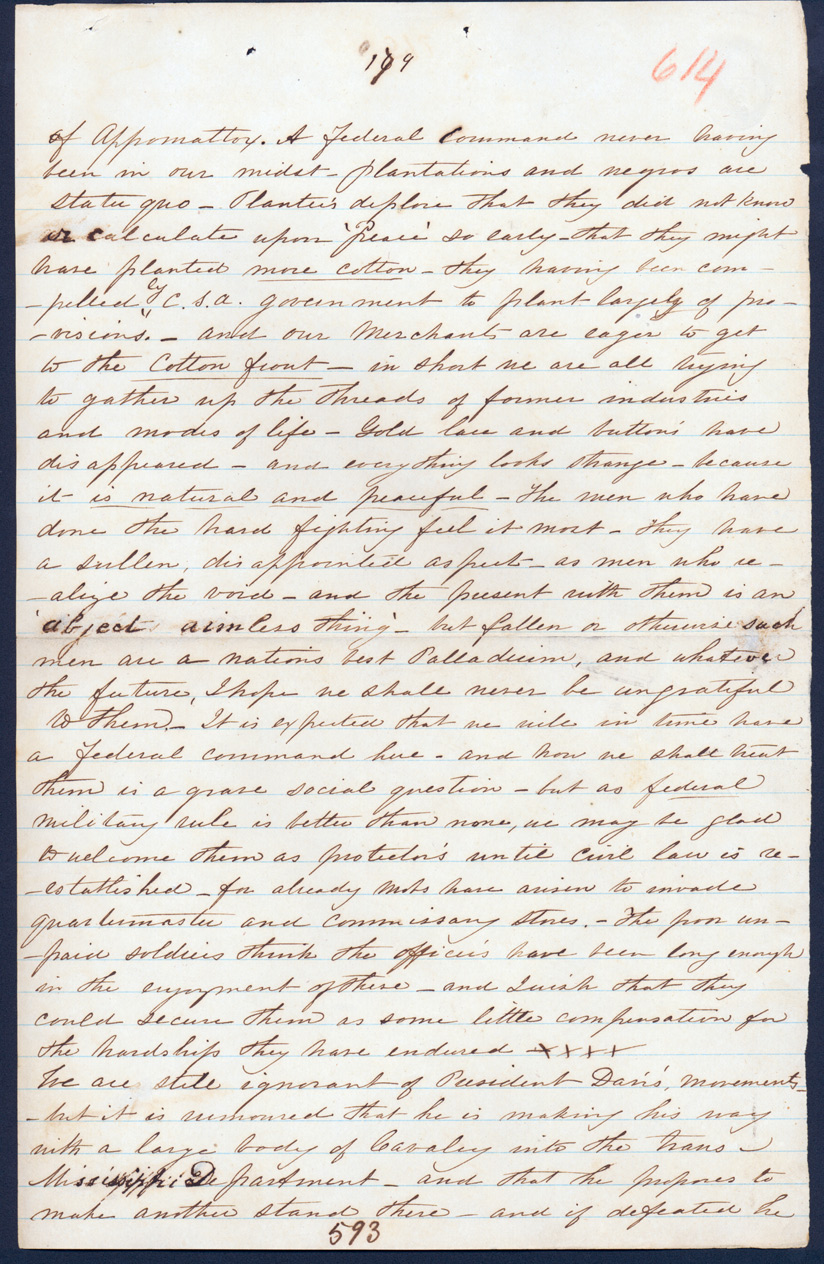 179
614
of Appomattox. A Federal Command never having
been in our midst - plantations and negros are
statu quo - Planters deplore that they did not know
or calculate upon 'Peace' so early - that they might
have planted more cotton - they having been com-
-pelled by C.S.A. government to plant largely of pro-
-visions. - and our Merchants are eager to get
to the Cotton front - in short we are all trying
to gather up the threads of former industries
and modes of life - Gold lace and button's have
disappeared - and everything looks strange - because
it is natural and peaceful - The men who have
done the hard fighting feel it most - They have
a sullen, disappointed aspect - as men who re-
-alize the void - and the present with them is an
'abject aimless thing' - but fallen or otherwise such
men are a nations best Palladium, and whatever
the future, I hope we shall never be ungrateful
to them. - It is expected that we will in time have
a Federal command here - and how we shall treat
them is a grave social question - but as federal
military rule is better than none, we may be glad
to welcome them as protector's until civil law is re-
-established - for already mobs have arisen to invade
quartermaster and commissary stores. - The poor un-
-paid soldiers think the officer's have been long enough
in the enjoyment of these - and I wish that they
could secure them as some little compensation for
the hardships they have endured - xxxx
We are still ignorant of President Davis' movements -
- but it is rumoured that he is making his way
with a large body of Cavalry into the trans -
Mississippi Department - and that he proposes to
make another stand there - and if defeated he
593